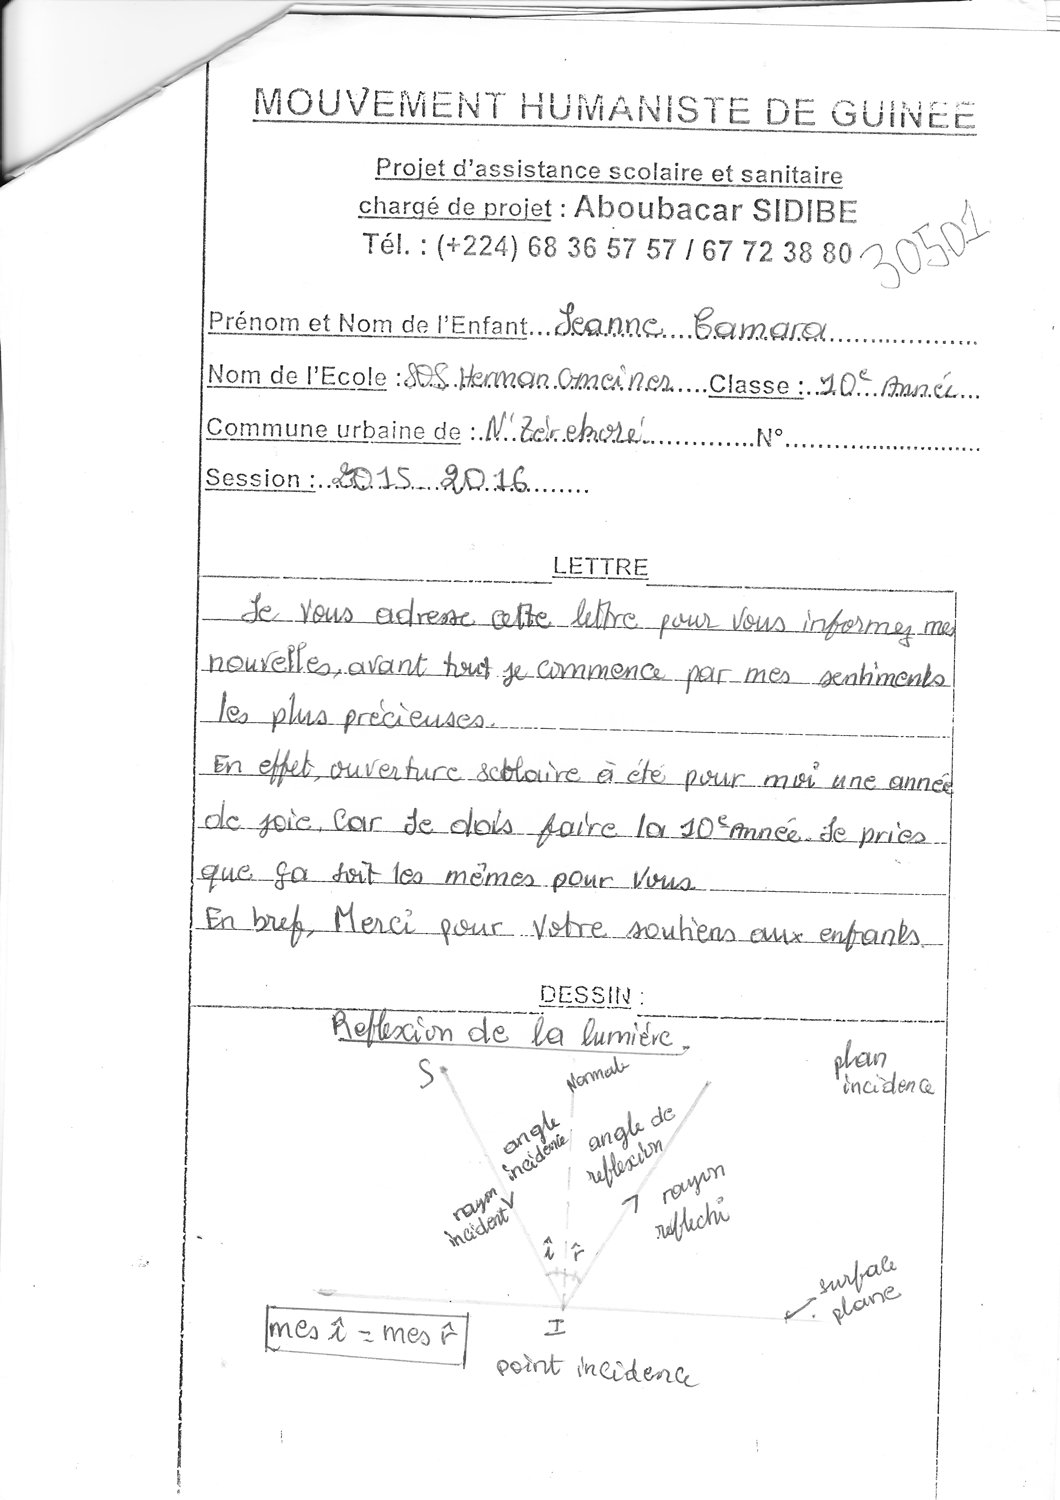 MOUVEMENT HUMANISTE DE GUINEE
Projet d'assistance scolaire et sanitaire
chargé de projet : Aboubacar SIDIBE
Tél. : (+224) 68 36 57 57 / 67 72 38 80
30501
Prénom et Nom de l'Enfant...Jeanne....Camara....................
Nom de l'Ecole :SOS.Herman.Gmeiner.....Classe :..10e...Année...
Commune urbaine de :.N'Zérékoré..............N°............................
Session :...2015....2016........
LETTRE
Je vous adresse cette lettre pour vous informez mes
nouvelles, avant tout je commence par mes sentiments
les plus précieuses.
En effet, ouverture scolaire à été pour moi une année
de joie. Car Je dois faire la 10e Année. Je pries
que ça soit les mêmes pour vous
En bref, Merci pour votre soutiens aux enfants.
DESSIN :
Reflexion de la lumiére.
plan
incidence
S
Normale
angle
incidence
angle de
reflexion
rayon
incident
rayon
reflechi
î r̂
surface
plane
mes î = mes r̂
I
point incidence